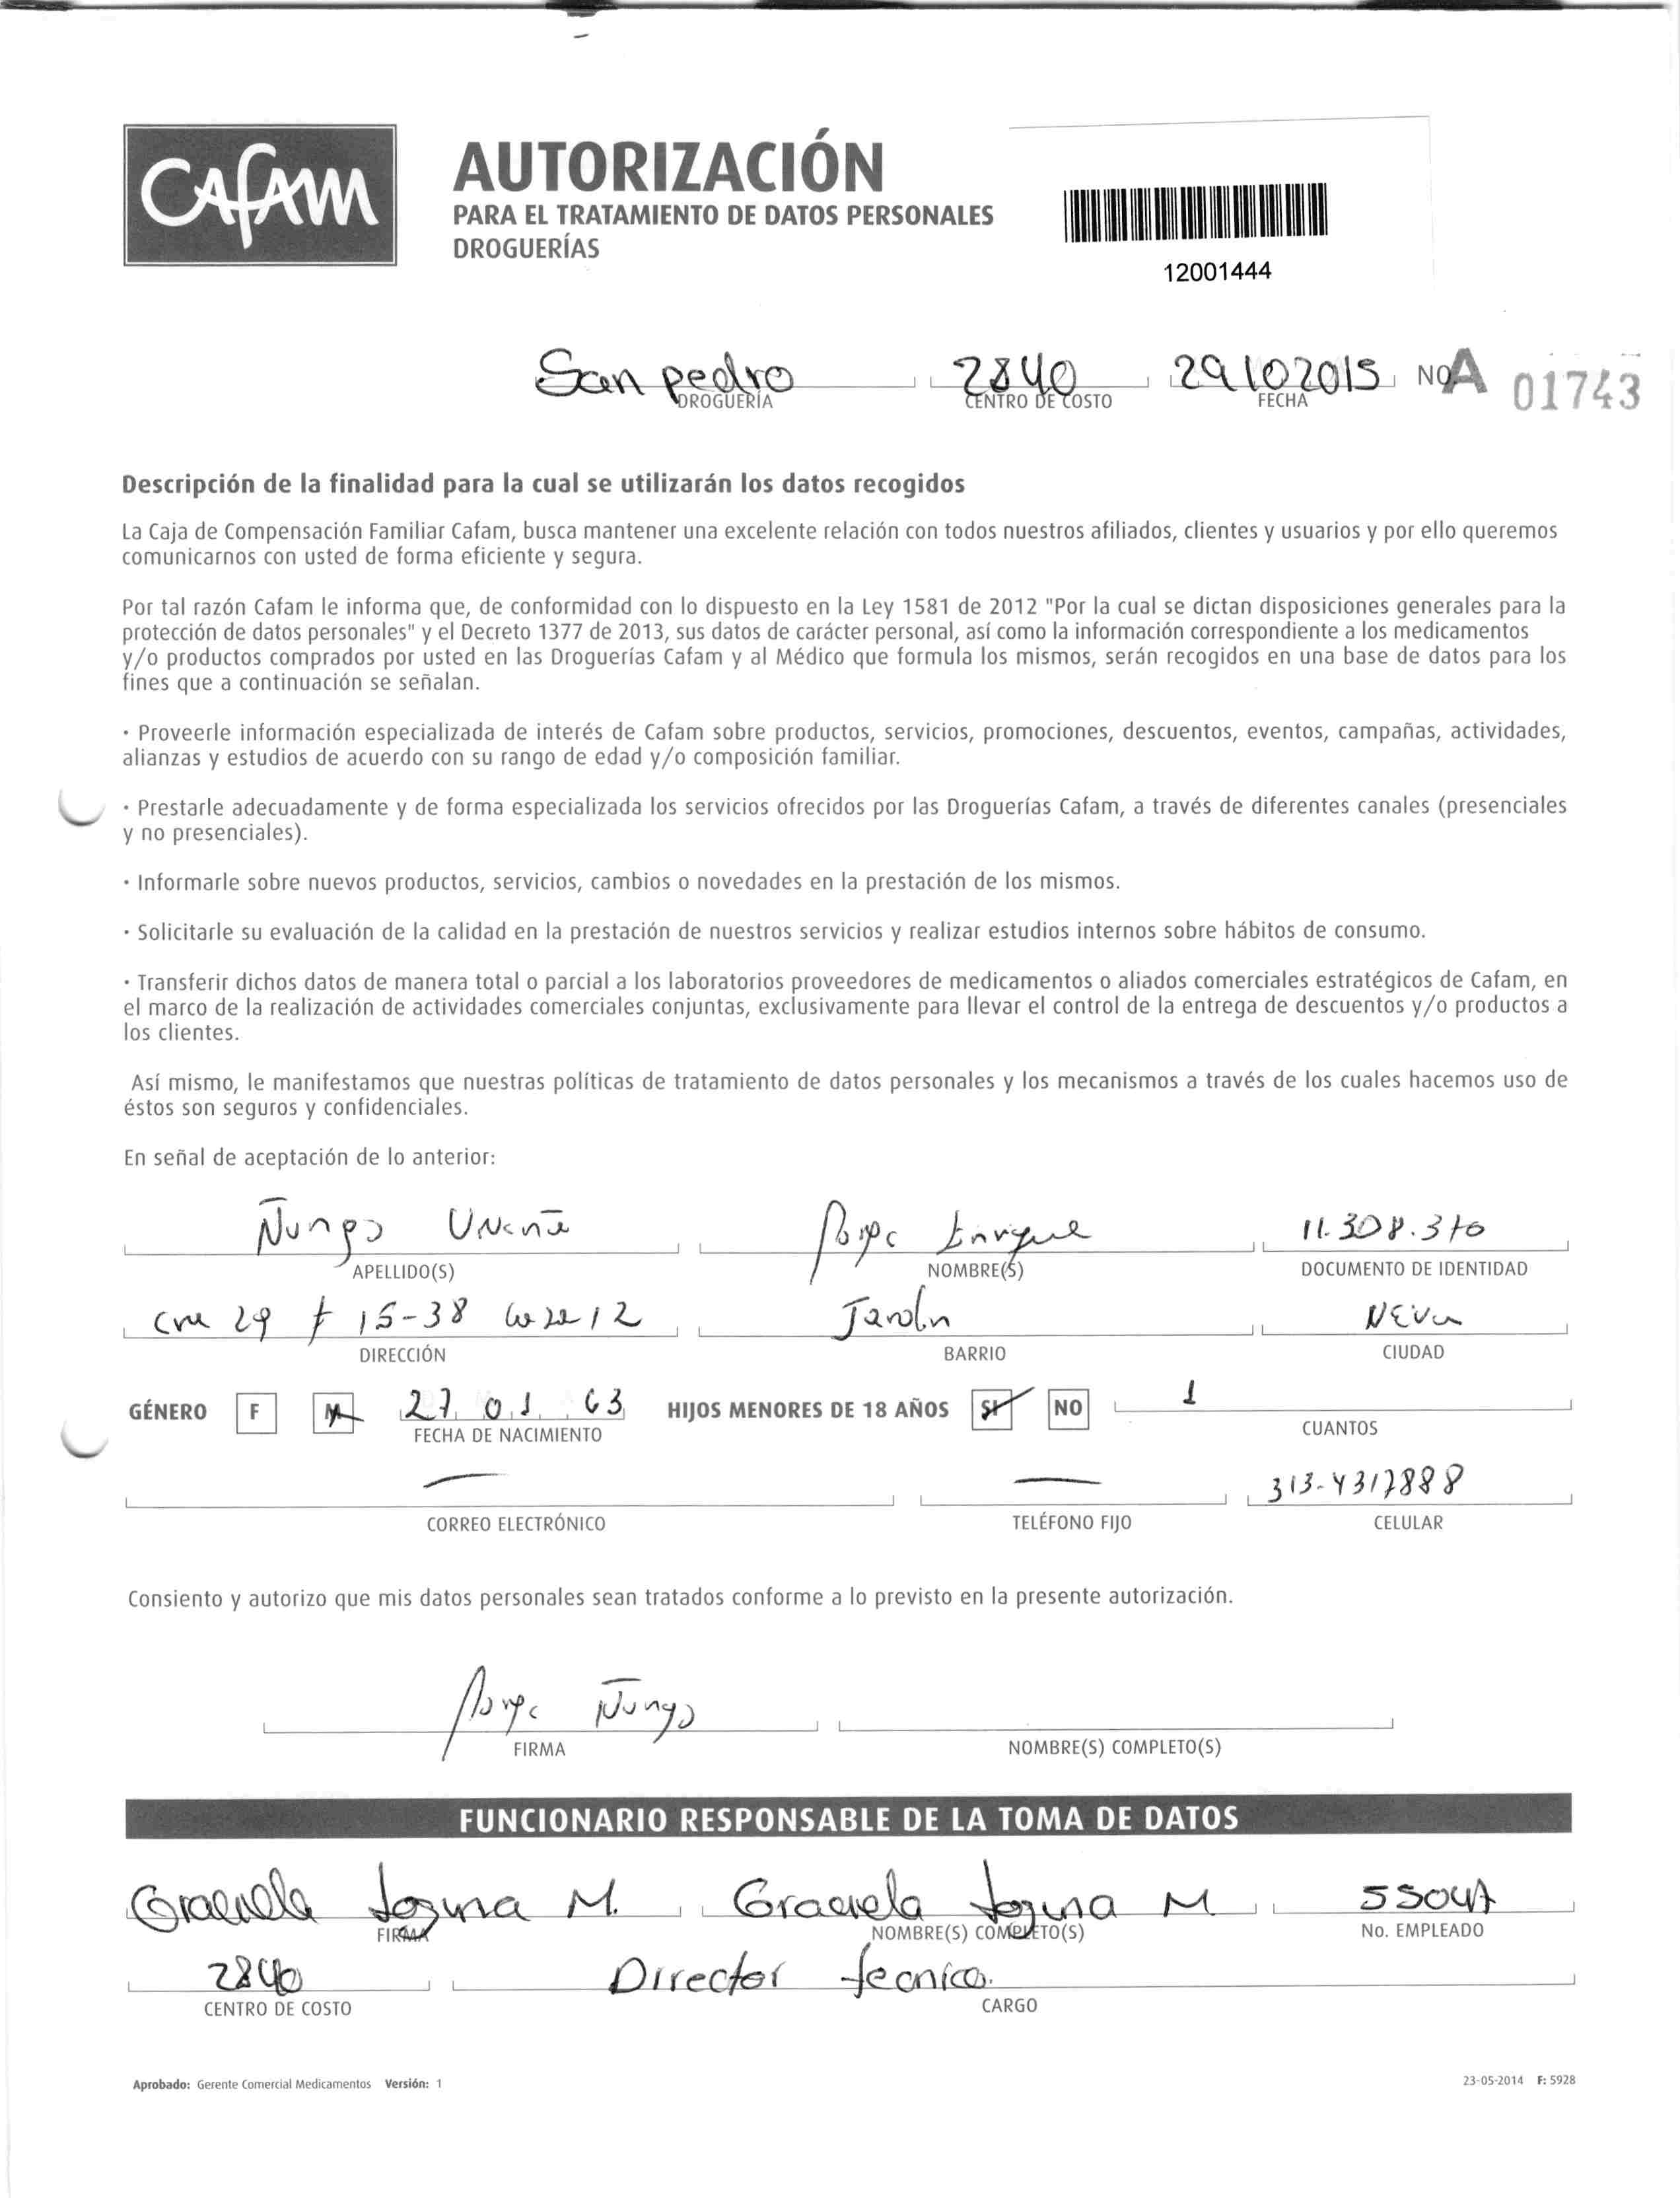 CAFAM
AUTORIZACIÓN
PARA EL TRATAMIENTO DE DATOS PERSONALES
DROGUERÍAS
12001444
San pedro 2840 29 10 2015 NO A 01743
DROGUERÍA CENTRO DE COSTO FECHA
Descripción de la finalidad para la cual se utilizarán los datos recogidos
La Caja de Compensación Familiar Cafam, busca mantener una excelente relación con todos nuestros afiliados, clientes y usuarios y por ello queremos
comunicarnos con usted de forma eficiente y segura.
Por tal razón Cafam le informa que, de conformidad con lo dispuesto en la Ley 1581 de 2012 "Por la cual se dictan disposiciones generales para la
protección de datos personales" y el Decreto 1377 de 2013, sus datos de carácter personal, así como la información correspondiente a los medicamentos
y/o productos comprados por usted en las Droguerías Cafam y al Médico que formula los mismos, serán recogidos en una base de datos para los
fines que a continuación se señalan.
· Proveerle información especializada de interés de Cafam sobre productos, servicios, promociones, descuentos, eventos, campañas, actividades,
alianzas y estudios de acuerdo con su rango de edad y/o composición familiar.
· Prestarle adecuadamente y de forma especializada los servicios ofrecidos por las Droguerías Cafam, a través de diferentes canales (presenciales
y no presenciales).
· Informarle sobre nuevos productos, servicios, cambios o novedades en la prestación de los mismos.
· Solicitarle su evaluación de la calidad en la prestación de nuestros servicios y realizar estudios internos sobre hábitos de consumo.
· Transferir dichos datos de manera total o parcial a los laboratorios proveedores de medicamentos o aliados comerciales estratégicos de Cafam, en
el marco de la realización de actividades comerciales conjuntas, exclusivamente para llevar el control de la entrega de descuentos y/o productos a
los clientes.
Así mismo, le manifestamos que nuestras políticas de tratamiento de datos personales y los mecanismos a través de los cuales hacemos uso de
éstos son seguros y confidenciales.
En señal de aceptación de lo anterior:
Ñungo Enrique
APELLIDO(S) NOMBRE(S) DOCUMENTO DE IDENTIDAD
29 # 15-38 12
DIRECCIÓN BARRIO CIUDAD
GÉNERO F M 27 01 63 HIJOS MENORES DE 18 AÑOS SI NO 1
FECHA DE NACIMIENTO CUANTOS
— — 313-4317888
CORREO ELECTRÓNICO TELÉFONO FIJO CELULAR
Consiento y autorizo que mis datos personales sean tratados conforme a lo previsto en la presente autorización.
Ñungo
FIRMA NOMBRE(S) COMPLETO(S)
FUNCIONARIO RESPONSABLE DE LA TOMA DE DATOS
Graciela M. Graciela M
FIRMA NOMBRE(S) COMPLETO(S) No. EMPLEADO
2840 Director tecnico.
CENTRO DE COSTO CARGO
Aprobado: Gerente Comercial Medicamentos Versión: 1 23-05-2014 F: 5928